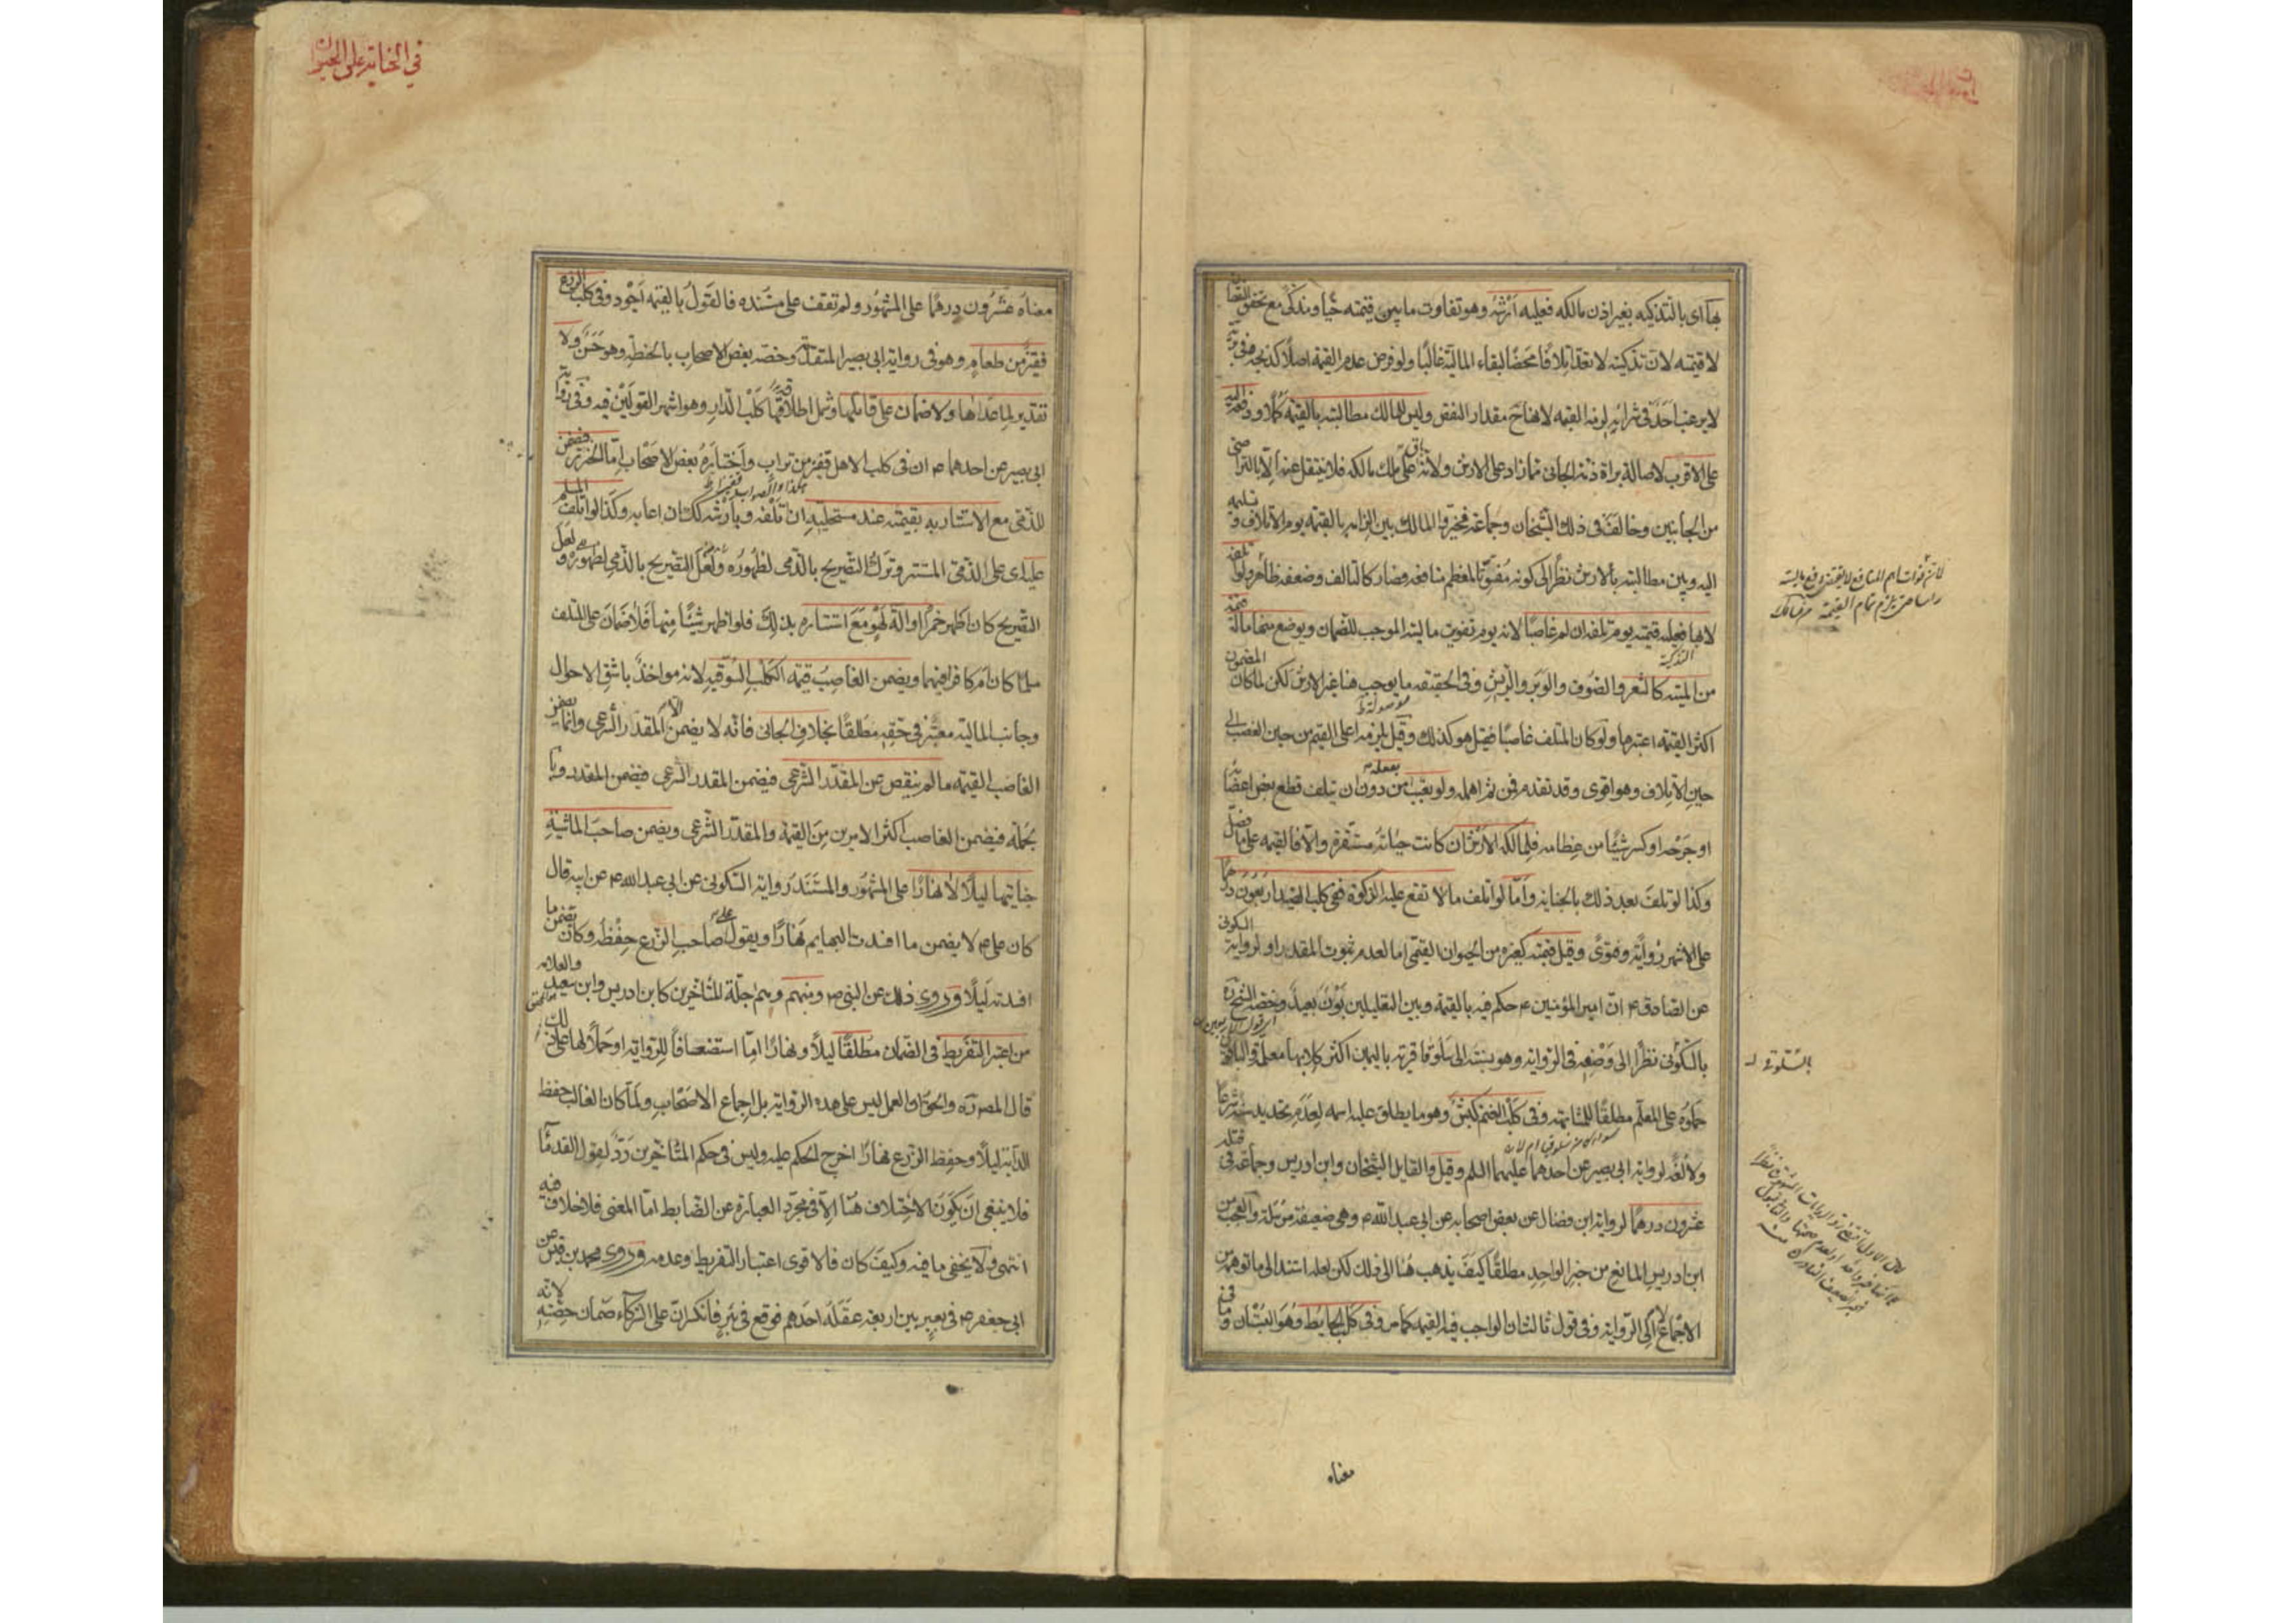 بها اى بالتذكية بغير اذن مالكه فعليه ارشه وهو تفاوت ما بين قيمته حيا ومذكى مع تحقق النقصان
لا قيمته لان تذكيته لا تعد اتلافا محضا لبقاء المالية غالبا ولو فرض عدم القيمة اصلا كذبحه فى برية
لا يرغب احد فى شرائه لزمه القيمة لانها ح مقدار النقص وليس للمالك مطالبته بالقيمة كملا ودفعه اليه
على الاقرب لاصالة براة ذمة الجانى مما زاد على الارش ولانه باق على ملك مالكه فلا ينتقل عنه الا بالتراضى
من الجانبين وخالف فى ذلك الشيخان وجماعة فخيروا المالك بين الزامه بالقيمة يوم الاتلاف وتسليمه
اليه وبين مطالبته بالارش نظرا الى كونه مفوتا لمعظم منافعه فصار كالتالف وضعفه ظاهر ولو اتلفه
لا بها فعليه قيمته يوم تلفه ان لم غاصبا لانه يوم تفويت ماليته الموجب للضمان ويوضع منها ما له قيمة
من الميتة كالشعر والصوف والوبر والريش وفى الحقيقة ما يوجب هنا غير الارش لكن لما كان المضمون
اكثر القيمة اعتبرها ولو كان المتلف غاصبا فقيل هو كذلك وقيل يلزمه اعلى القيم من حين الغصب الى
حين الاتلاف وهو اقوى وقد تقدم ومن ثم اهمله ولو تعيب بفعله من دون ان يتلف قطع بعض اعضائه
او جرحه او كسر شيئا من عظامه فلمالكه الارش ان كانت حياته مستقرة والا فالقيمة على ما فصل
وكذا لو تلف بعد ذلك بالجناية واما لو اتلف ما لا تقع عليه الزكوة ففى كلب الصيد اربعون درهما
على الاشهر رواية وفتوى وقيل قيمته كغيره من الحيوان القيمى اما لعدم ثبوت المقدر او لرواية السكونى
عن الصادق ع ان امير المؤمنين ع حكم فيه بالقيمة وبين التعليلين بون بعيد وخصه الشيخ ره
بالسلوقى نظرا الى وصفه فى الرواية وهو نسبة الى سلوق قرية باليمن اكثر كلابها معلمة والباقون
حملوه على المعلم مطلقا للمشابهة وفى كلب الغنم كبش وهو ما يطلق عليه اسمه لعدم تحديد سنه شرعا
ولا لغة لرواية ابى بصير عن احدهما عليهما السلم وقيل والقايل الشيخان وابن ادريس وجماعة فى قتله
عشرون درهما لرواية ابن فضال عن بعض اصحابه عن ابى عبدالله ع وهى ضعيفة مرسلة والعجب من
ابن ادريس المانع من خبر الواحد مطلقا كيف يذهب هنا الى ذلك لكن لعله استند الى ما توهمه من
الاجماع لا الى الرواية وفى قول ثالث ان الواجب فيه القيمة كما مر وفى كلب الحايط وهو البستان وما فى
معناه
بالسلوقى
فى الجناية على الحيوان
معناه عشرون درهما على المشهور ولم نقف على مسنده فالقول بالقيمة اجود وفى كلب الزرع
قفيز من طعام وهو فى رواية ابى بصير المتقدمة وخصه بعض الاصحاب بالحنطة وهو حسن ولا
تقدير لما عداها ولا ضمان على قاتلها وشمل اطلاقه كلب الدار وهو اشهر القولين فيه وفى رواية
ابى بصير عن احدهما ع ان فى كلب الاهل قفيز من تراب واختاره بعض الاصحاب اما الخنزير فيضمن
للذمى مع الاستتار به بقيمته عند مستحليه ان اتلفه وبارشه كك ان اعابه وكذا لو اتلف المسلم
عليه اى على الذمى المستتر وترك التصريح بالذمى لظهوره ولعل التصريح بالذمى لظهوره ولعل
التصريح كان اظهر خمرا او آلة لهو مع استتاره بذلك فلو اظهر شيئا منها فلا ضمان على المتلف
مسلما كان ام كافرا فيهما ويضمن الغاصب قيمة الكلب السوقية لانه مواخذ باشق الاحوال
وجانب المالية معتبر فى حقه مطلقا بخلاف الجانى فانه لا يضمن الا المقدر الشرعى وانما يضمن
الغاصب القيمة ما لم ينقص عن المقدر الشرعى فيضمن المقدر الشرعى فيضمن المقدر وبا
لجملة فيضمن الغاصب اكثر الامرين من القيمة والمقدر الشرعى ويضمن صاحب الماشية
جنايتها ليلا لا نهارا على المشهور والمستند رواية السكونى عن ابى عبدالله ع عن ابيه قال
كان على ع لا يضمن ما افسدت البهايم نهارا ويقول على صاحب الزرع حفظه وكان يضمن ما
افسدته ليلا وروى ذلك عن النبى ص ومنهم وهم اجلة المتأخرين كابن ادريس وابن سعيد والعلامه
من اعتبر التفريط فى الضمان مطلقا ليلا ونهارا اما استضعافا للرواية او حملا لها على ذلك
قال المصنف ره والحق ان العمل ليس على هذه الرواية بل اجماع الاصحاب ولما كان الغالب حفظ
الدابة ليلا وحفظ الزرع نهارا اخرج الحكم عليه وليس فى حكم المتأخرين رد لقول القدماء
فلا ينبغى ان يكون الاختلاف هنا الا فى مجرد العبارة عن الضابط اما المعنى فلا خلاف فيه
انتهى ولا يخفى ما فيه وكيف كان فالاقوى اعتبار التفريط وعدمه وروى محمد بن قيس عن
ابى جعفر ع فى بعير بين اربعة عقله احدهم فوقع فى بئر فانكسر ان على الشركاء ضمان حصته لانه